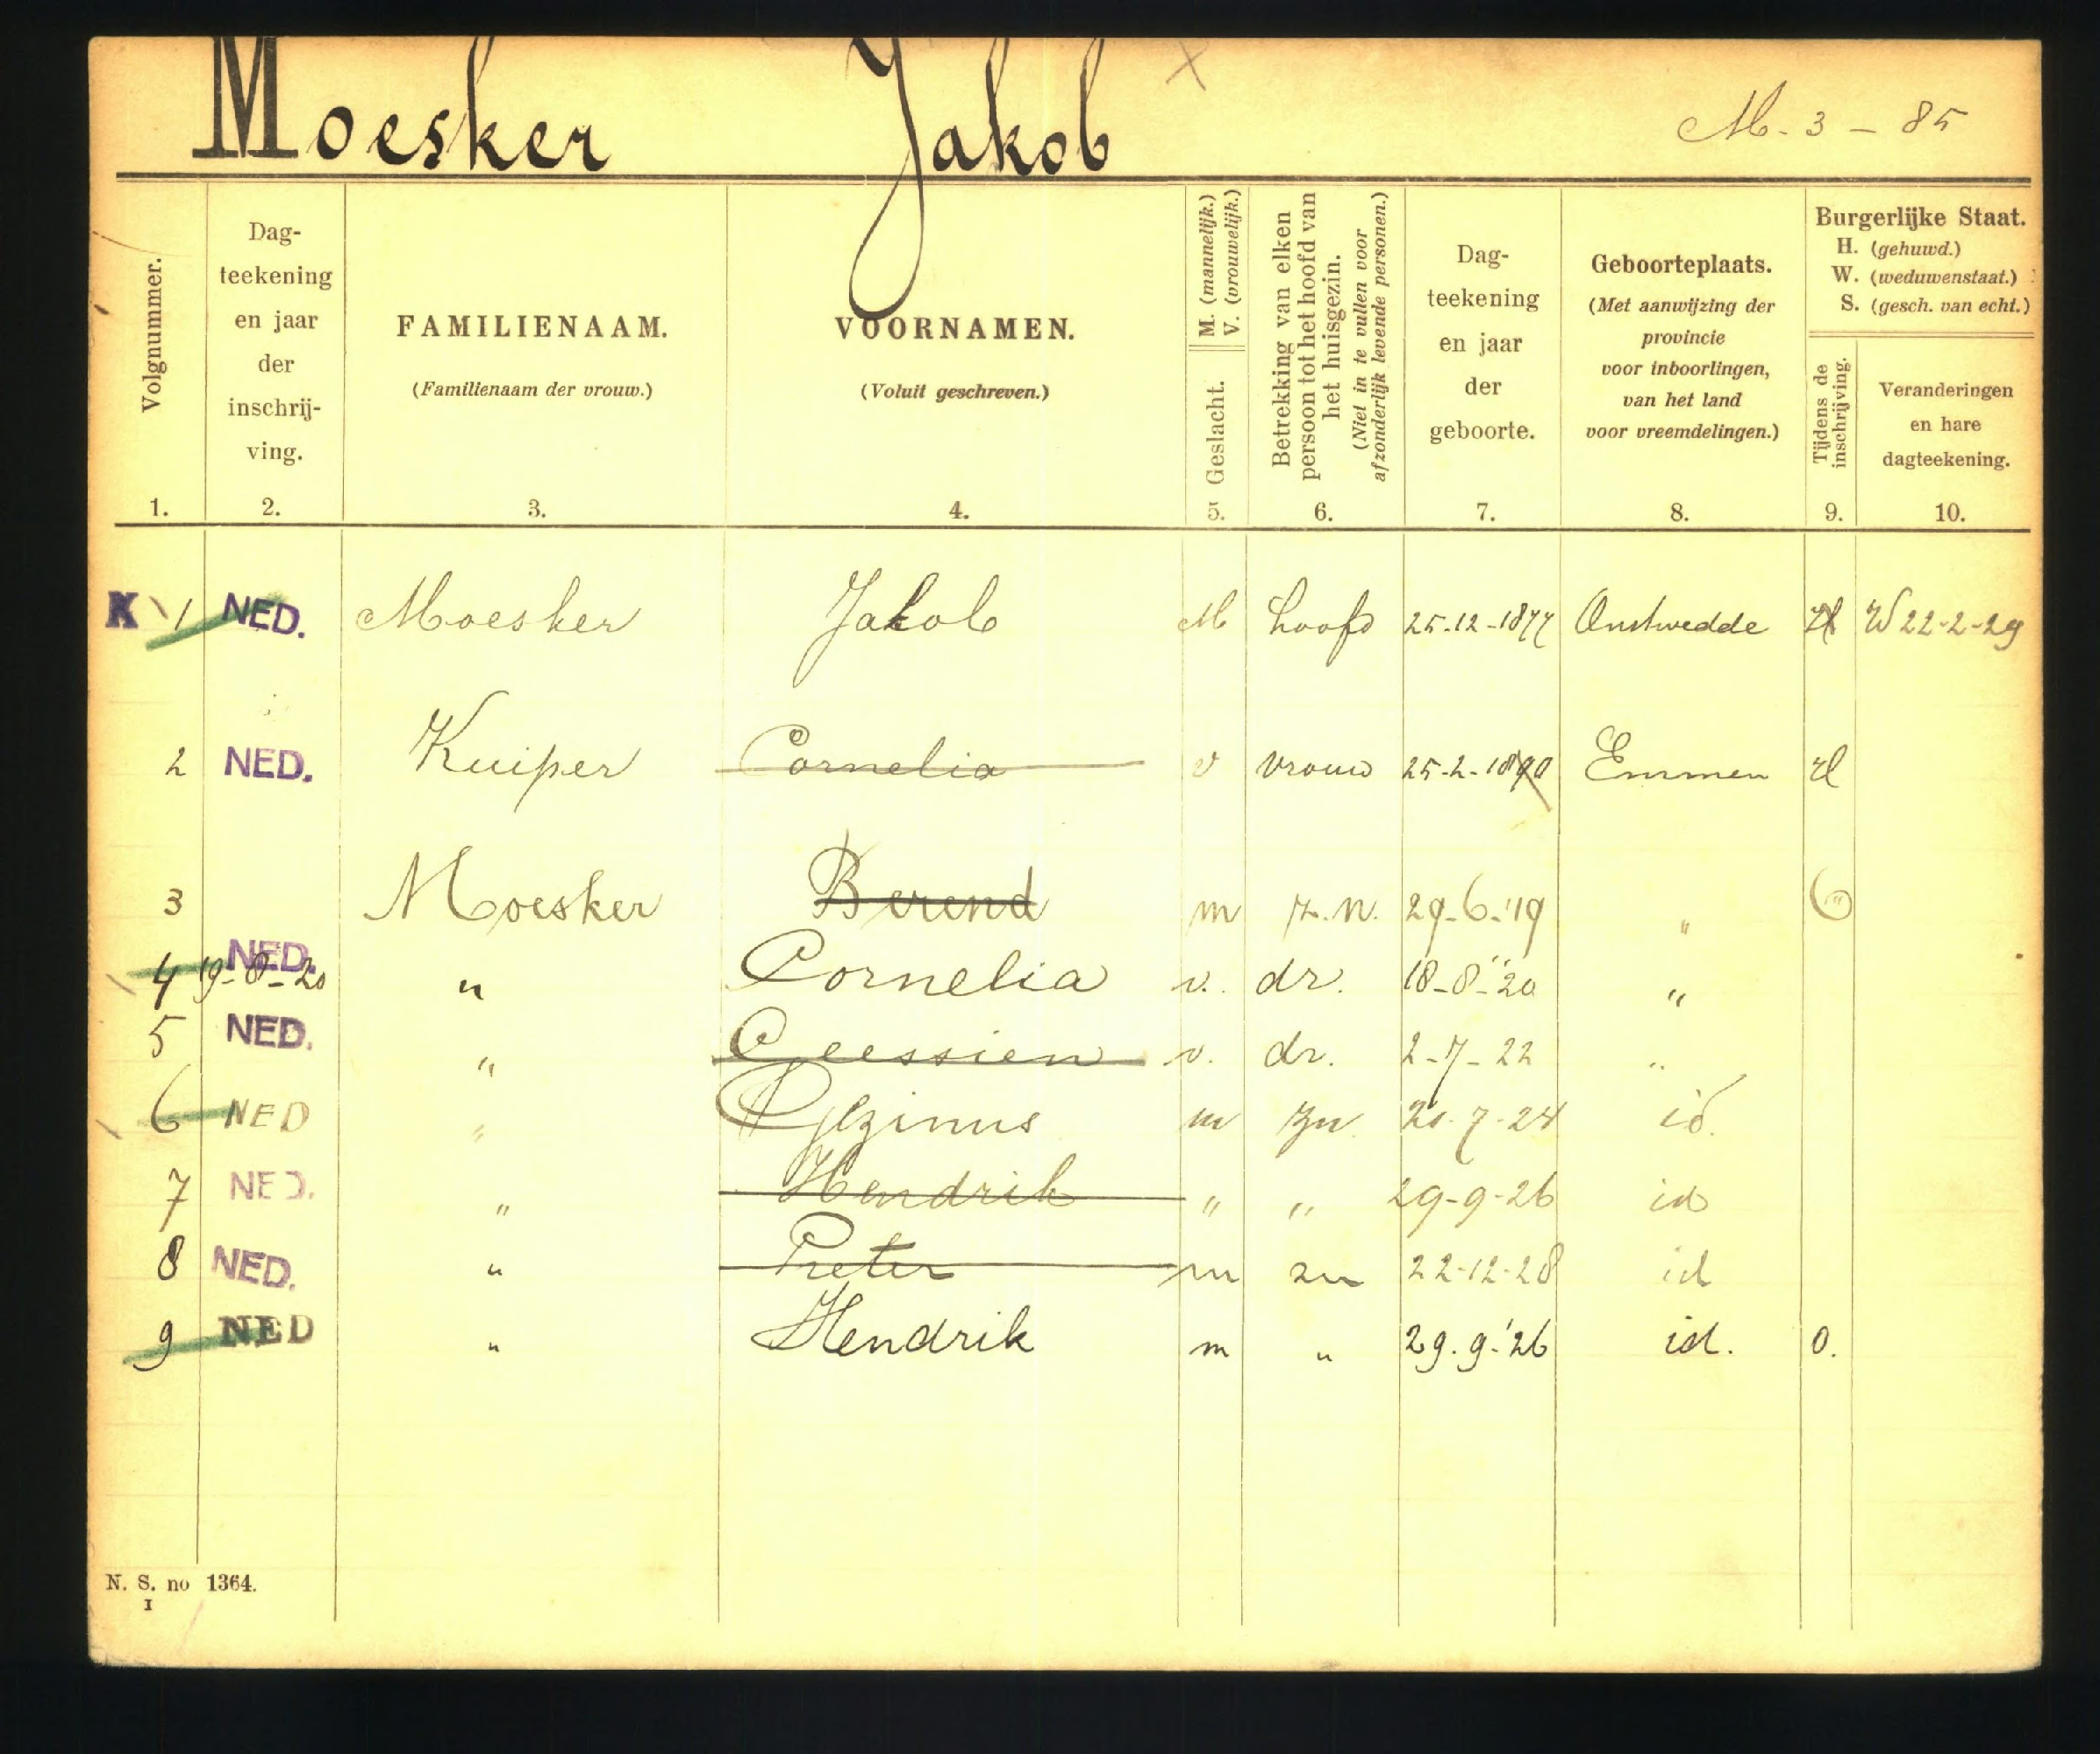 Moesker Jakob
M. 3 – 85
Volgnummer.
Dag-
teekening
en jaar
der
inschrij-
ving.
FAMILIENAAM.
(Familienaam der vrouw.)
VOORNAMEN.
(Voluit geschreven.)
M. (mannelijk.)
V. (vrouwelijk.)
Geslacht.
Betrekking van elken
persoon tot het hoofd van
het huisgezin.
(Niet in te vullen voor
afzonderlijk levende personen.)
Dag-
teekening
en jaar
der
geboorte.
Geboorteplaats.
(Met aanwijzing der
provincie
voor inboorlingen,
van het land
voor vreemdelingen.)
Burgerlijke Staat.
H. (gehuwd.)
W. (weduwenstaat.)
S. (gesch. van echt.)
Tijdens de
inschrijving.
Veranderingen
en hare
dagteekening.
1. 2. 3. 4. 5. 6. 7. 8. 9. 10.
K 1 NED. Moesker Jakob M hoofd 25-12-1877 Onstwedde H W 22-2-29
2 NED. Kuiper Cornelia v vrouw 25-2-1890 Emmen H
3 Moesker Berend m z.n. 29-6-'19 "
4 NED. 19-8-20 " Cornelia v. dr. 18-8-'20 "
5 NED. " Geessien v. dr. 2-7-22 "
6 NED " m zn 7-24 id.
7 NED. " Hendrik " " 29-9-26 id
8 NED. " Pieter m zn 22-12-28 id
9 NED " Hendrik m " 29.9.'26 id. O.
N. S. no 1364.
I